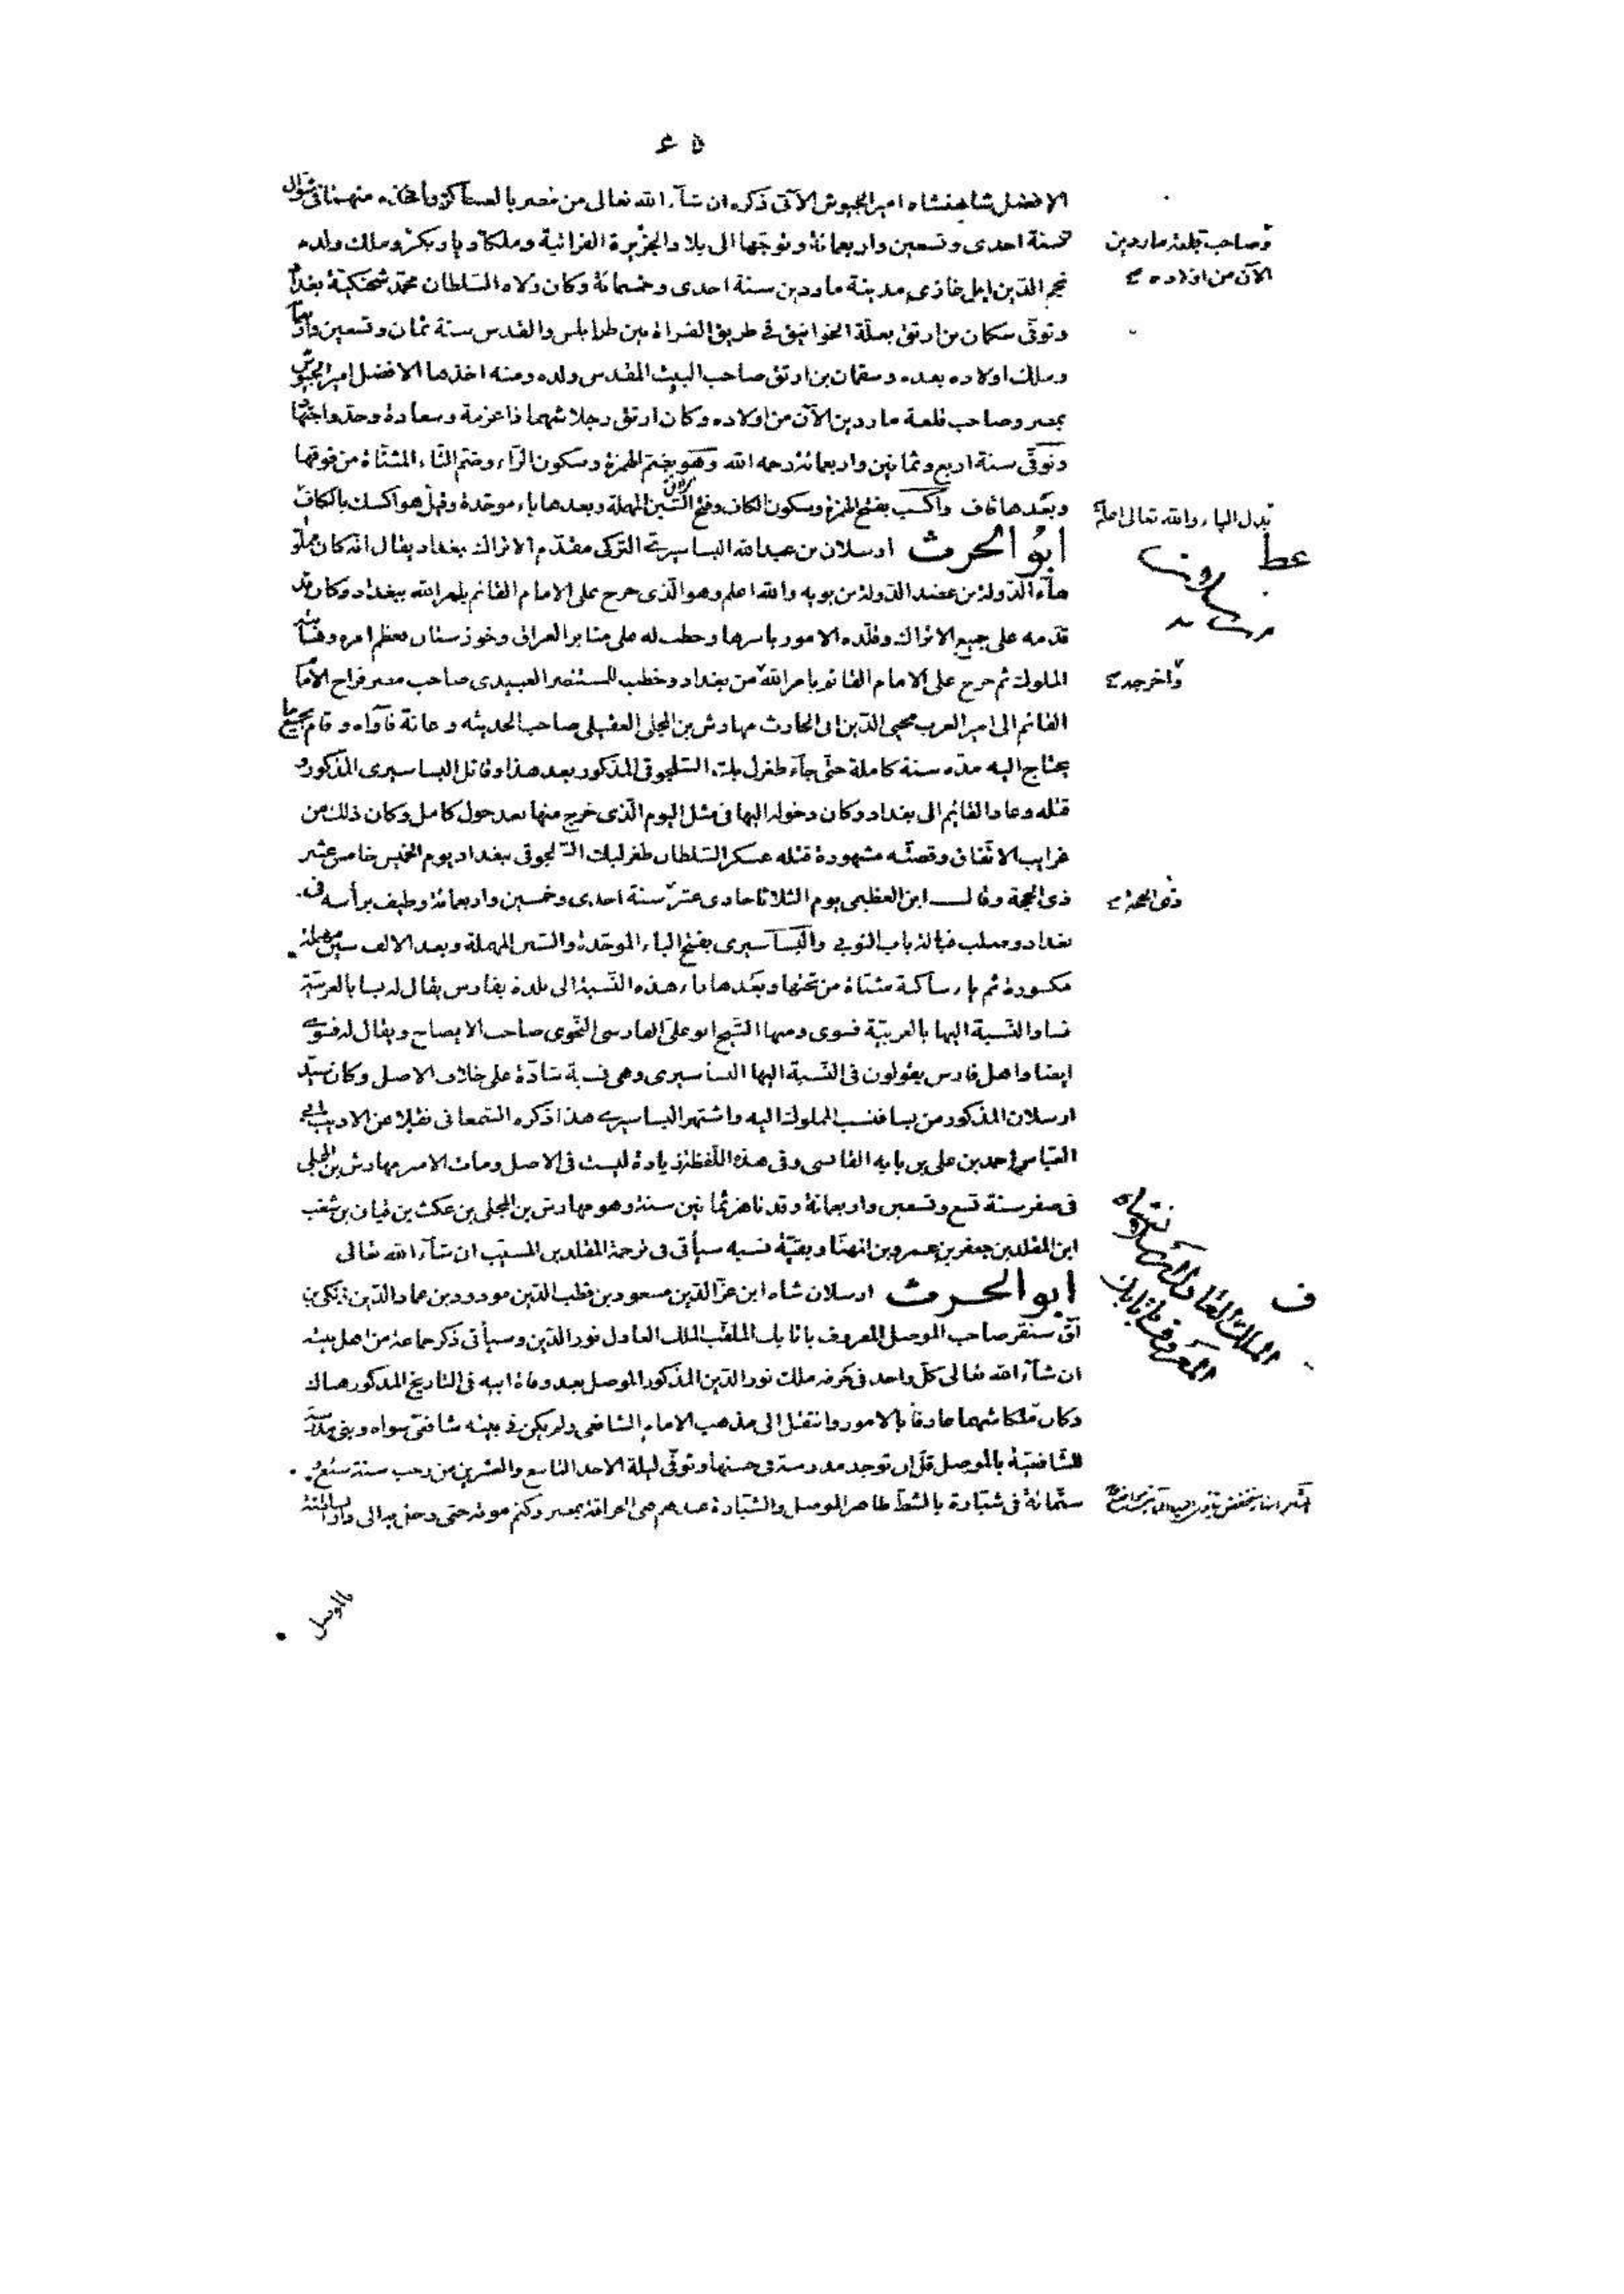 ٤٥
الافضل شاهنشاه امير الجيوش الآتى ذكره ان شآء الله تعالى من مصر بالعساكر وأخذه منهما فى شوال
سنة احدى وتسعين واربعمائة وتوجها الى بلاد الجزيرة الفراتية وملكا ديار بكر وملك ولده
وصاحب قلعة ماردين
الآن من اولاده
نجم الدّين ايل غازى مدينة ماردين سنة احدى وخمسمائة وكان ولاه السّلطان محمّد شحنكيّة بغداد
وتوفّى سكمان بن ارتق بعلّة الخوانيق فى طريق الفرات بين طرابلس والقدس سنة ثمان وتسعين واربعمائة
وملك اولاده بعده وسقمان بن ارتق صاحب البيت المقدس ولده ومنه اخذها الافضل امير الجيوش
بمصر وصاحب قلعة ماردين الآن من اولاده وكان ارتق رجلا شهما ذا عزمة وسعادة وجدّ واجتهاد
وتوفّى سنة اربع وثمانين واربعمائة رحمه الله وهو بضم الهمزة وسكون الرّاء وضم التّاء المثنّاة من فوقها
وبعدها قاف واكسب بفتح الهمزة وسكون الكاف وفتح السّين المهملة وبعدها باء موحّدة وقيل هو اكسك بالكاف
بدل الباء والله تعالى اعلم
ابوُ الحرث ارسلان بن عبدالله البساسيرى التركى مقدّم الاتراك ببغداد يقال انه كان مملوك
بهآء الدّولة بن عضد الدّولة بن بويه والله اعلم وهو الّذى خرج على الامام القائم بامر الله ببغداد وكان قد
قدّمه على جميع الاتراك وقلّده الامور باسرها وخطب له على منابر العراق وخوزستان فعظم امره وهابته
الملوك ثم خرج على الامام القائم بامر الله من بغداد وخطب للمستنصر العبيدى صاحب مصر فراح الامام
واخرجه
القائم الى امير العرب محيى الدّين ابى الحارث مهارش بن المجلى العقيلى صاحب الحديثه وعانة فآواه وقام بجميع ما
يحتاج اليه مدّه سنة كاملة حتّى جآء طغرل بك السّلجوقى المذكور بعد هذا وقاتل البساسيرى المذكور و
قتله وعاد القائم الى بغداد وكان دخوله اليها فى مثل اليوم الّذى خرج منها بعد حول كامل وكان ذلك من
غرايب الاتّفاق وقصّته مشهورة قتله عسكر السّلطان طغرلبك السّلجوقى ببغداد يوم الخميس خامس عشر
ذى الحجة وقالــ ابن العظيمى يوم الثلاثا حادى عشر سنة احدى وخمسين واربعمائة وطيف برأسه فى
ذى الحجة
بغداد وصلب قبالة باب النوبى والبَسآسيرى بفتح الباء الموحّدة والسّين المهملة وبعد الالف سين مهملة
مكسورة ثم ياء ساكنة مثنّاة من تحتها وبعدها راء هذه النّسبة الى بلدة بفارس يقال لها بسا بالعربيّة
فسا والنّسبة اليها بالعربيّة فسوى ومنها الشّيخ ابو علىّ الفارسى النّحوى صاحب الايضاح ويقال له فسوى
ايضا واهل فارس يقولون فى النّسبة اليها البساسيرى وهى نسبة شاذّة على خلاف الاصل وكان سيّد
ارسلان المذكور من بسا فنسب المملوك اليه واشتهر البساسيرى هذا ذكره السّمعانى نقلا عن الاديب ابى
العبّاس احمد بن على بن بابه القاسى وفى هذه اللّفظة زيادة ليست فى الاصل ومات الامير مهارش بن المجلى
فى صفر سنة تسع وتسعين واربعمائة وقد ناهز ثمانين سنة وهو مهارش بن المجلى بن عكيث بن قيان بن شعب
ابن المقلد بن جعفر بن عمرو بن المهنّا وبقيّة نسبه سيأتى فى ترجمة المقلد بن المسيّب ان شآء الله تعالى
ابو الحــرث ارسلان شاه ابن عزّ الدّين مسعود بن قطب الدّين مودود بن عماد الدّين زنكى بن
ف
الملك العادل ارسلان شاه
المعروف باتابك
آق سنقر صاحب الموصل المعروف باتابك الملقّب الملك العادل نور الدّين وسيأتى ذكر جماعة من اهل بيته
ان شآء الله تعالى كلّ واحد فى حرفه ملك نور الدّين المذكور الموصل بعد وفاة ابيه فى التاريخ المذكور هناك
وكان ملكا شهما عارفا بالامور وانتقل الى مذهب الامام الشافعى ولم يكن فى بيته شافعىّ سواه وبنى مدرسة
للشّافعيّة بالموصل قلّ ان توجد مدرسة فى حسنها وتوفّى ليلة الاحد التاسع والعشرين من رجب سنة سبع و
ستّمائة فى شبّارة بالشطّ ظاهر الموصل والشّبّارة عندهم هى الحراقة بمصر وكتم موته حتى دخل به الى دار السلطنة
بالموصل